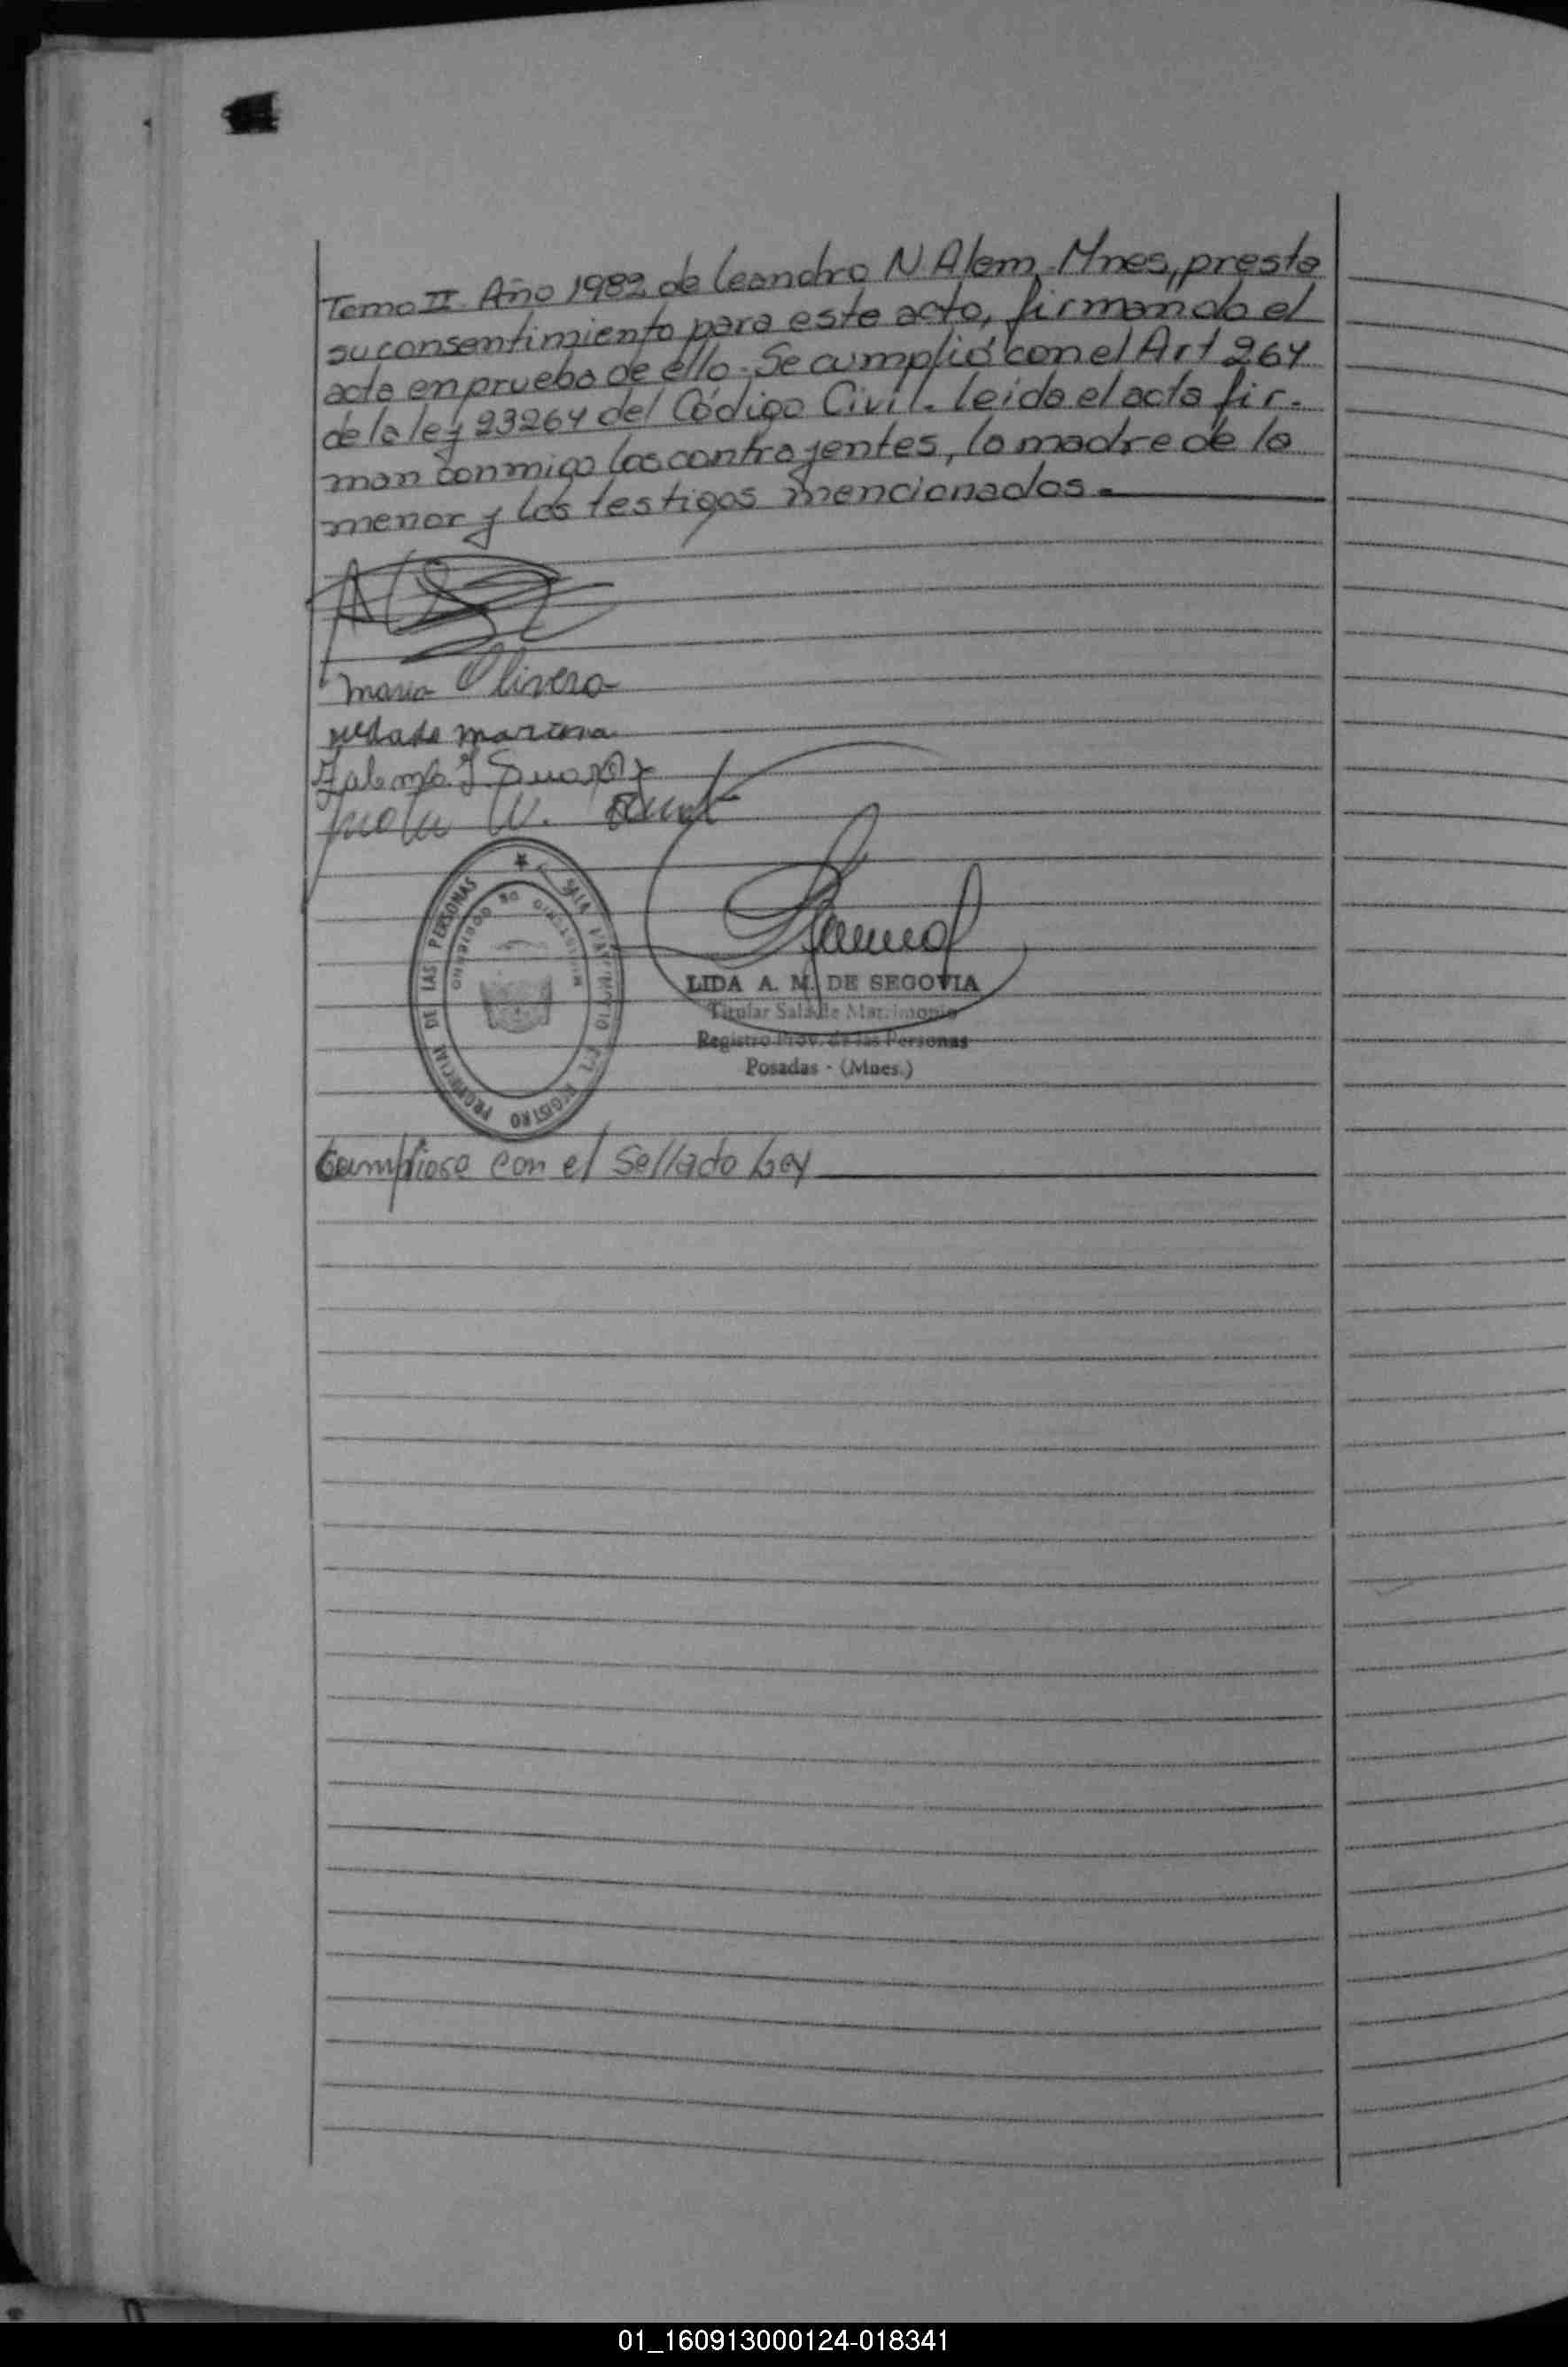 Tomo II Año 1982 de Leandro N. Alem - Mnes, presta
su consentimiento para este acto, firmando el
acta en prueba de ello. Se cumplió con el Art 264
de la ley 23264 del Código Civil. leída el acta fir-
man conmigo los contrayentes, la madre de la
menor y los testigos mencionados.
maria Olivera
LIDA A. M. DE SEGOVIA
Titular Sala de Matrimonio
Registro Prov. de las Personas
Posadas - (Mnes.)
SALA MATRIMONIO REGISTRO PROVINCIAL DE LAS PERSONAS
MINISTERIO DE GOBIERNO
Cumpliose con el Sellado Ley
01_160913000124-018341